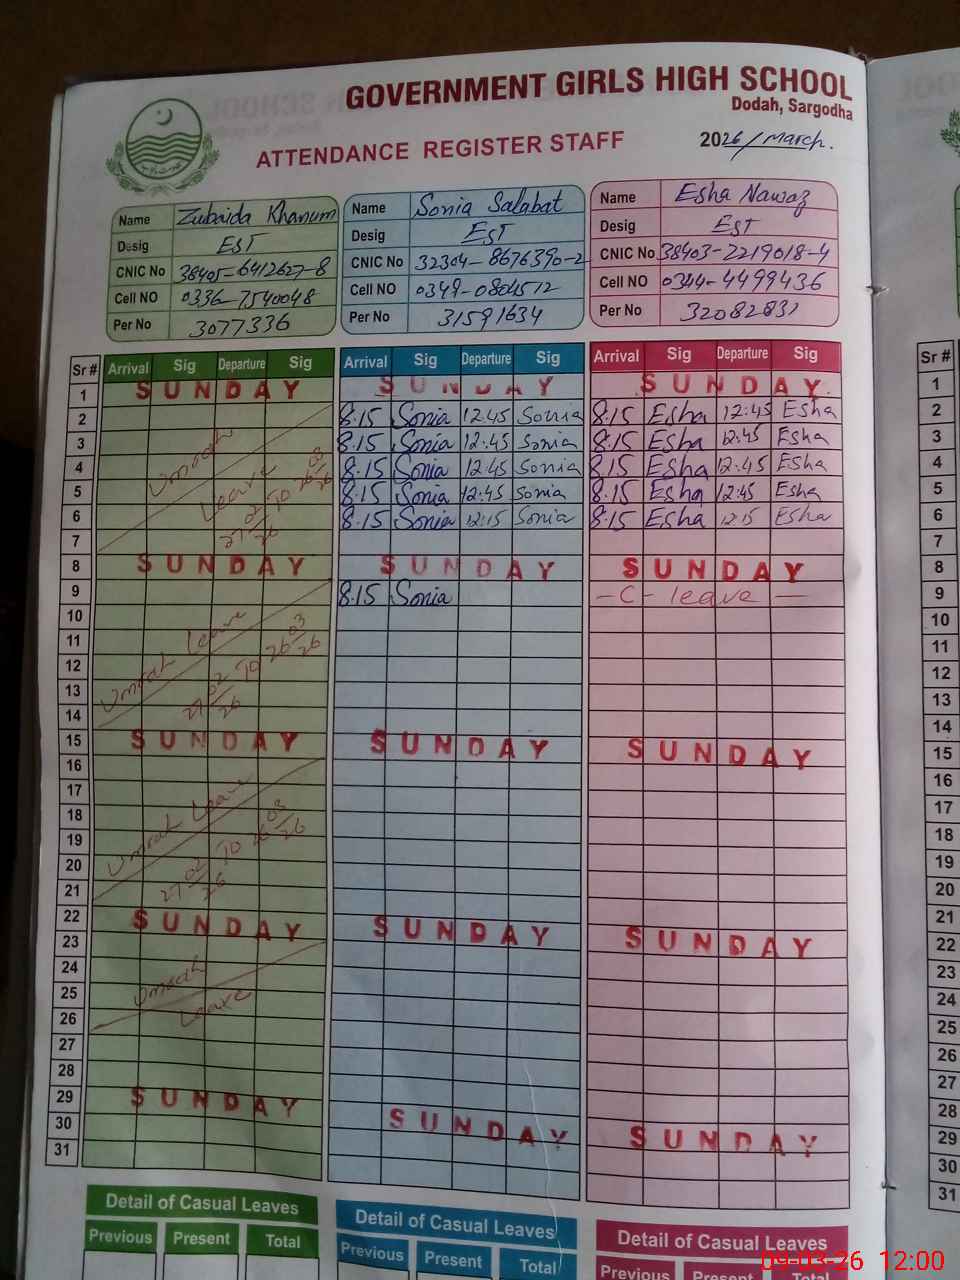 GOVERNMENT GIRLS HIGH SCHOOL
Dodah, Sargodha
ATTENDANCE REGISTER STAFF
2026/March.
Name Zubaida Khanum
Desig EST
CNIC No 38405-6412627-8
Cell NO 0336-7540048
Per No 3077336
Name Sonia Salabat
Desig EST
CNIC No 32304-8676390-2
Cell NO 0349-0804512
Per No 31591634
Name Esha Nawaz
Desig EST
CNIC No 38403-2219018-4
Cell NO 0344-4499436
Per No 32082831
Sr # Arrival Sig Departure Sig Arrival Sig Departure Sig Arrival Sig Departure Sig Sr #
1 SUNDAY SUNDAY SUNDAY 1
2 8:15 Sonia 12:45 Sonia 8:15 Esha 12:45 Esha 2
3 8:15 Sonia 12:45 Sonia 8:15 Esha 12:45 Esha 3
4 Umrah Leave 27 02/26 To 26 03/26 8:15 Sonia 12:45 Sonia 8:15 Esha 12:45 Esha 4
5 8:15 Sonia 12:45 Sonia 8:15 Esha 12:45 Esha 5
6 8:15 Sonia 12:15 Sonia 8:15 Esha 12:15 Esha 6
7 7
8 SUNDAY SUNDAY SUNDAY 8
9 8:15 Sonia -C- leave - 9
10 10
11 11
12 Umrah Leave 27 02/26 To 26 03/26 12
13 13
14 14
15 SUNDAY SUNDAY SUNDAY 15
16 16
17 17
18 18
19 Umrah Leave 27 02/26 To 26 03/26 19
20 20
21 21
22 SUNDAY SUNDAY SUNDAY 22
23 23
24 24
25 Umrah Leave 25
26 26
27 27
28 28
29 SUNDAY SUNDAY SUNDAY 29
30 30
31 31
Detail of Casual Leaves Detail of Casual Leaves Detail of Casual Leaves
Previous Present Total Previous Present Total Previous Present Total
09-03-26 12:00